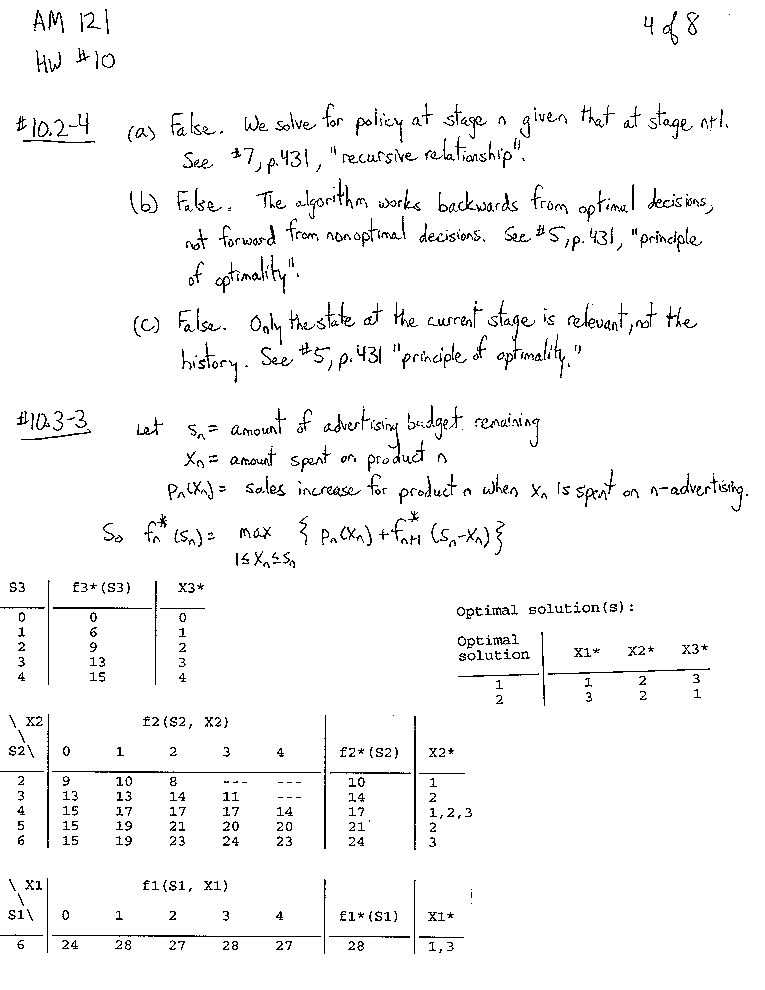 AM 121
4 of 8
HW #10
#10.2-4 (a) False. We solve for policy at stage n given that at stage n+1.
See #7, p.431, "recursive relationship".
(b) False. The algorithm works backwards from optimal decisions,
not forward from nonoptimal decisions. See #5, p.431, "principle
of optimality".
(c) False. Only the state at the current stage is relevant, not the
history. See #5, p.431 "principle of optimality."
#10.3-3 Let Sₙ = amount of advertising budget remaining
Xₙ = amount spent on product n
Pₙ(Xₙ) = sales increase for product n when Xₙ is spent on n-advertising.
So fₙ*(Sₙ) = max { Pₙ(Xₙ) + fₙ₊₁* (Sₙ-Xₙ) }
1≤Xₙ≤Sₙ
S3 f3*(S3) X3*
0 0 0
1 6 1
2 9 2
3 13 3
4 15 4
Optimal solution(s):
Optimal
solution X1* X2* X3*
1 1 2 3
2 3 2 1
\ X2 f2(S2, X2)
\
S2\ 0 1 2 3 4 f2*(S2) X2*
2 9 10 8 --- --- 10 1
3 13 13 14 11 --- 14 2
4 15 17 17 17 14 17 1,2,3
5 15 19 21 20 20 21 2
6 15 19 23 24 23 24 3
\ X1 f1(S1, X1)
\
S1\ 0 1 2 3 4 f1*(S1) X1*
6 24 28 27 28 27 28 1,3